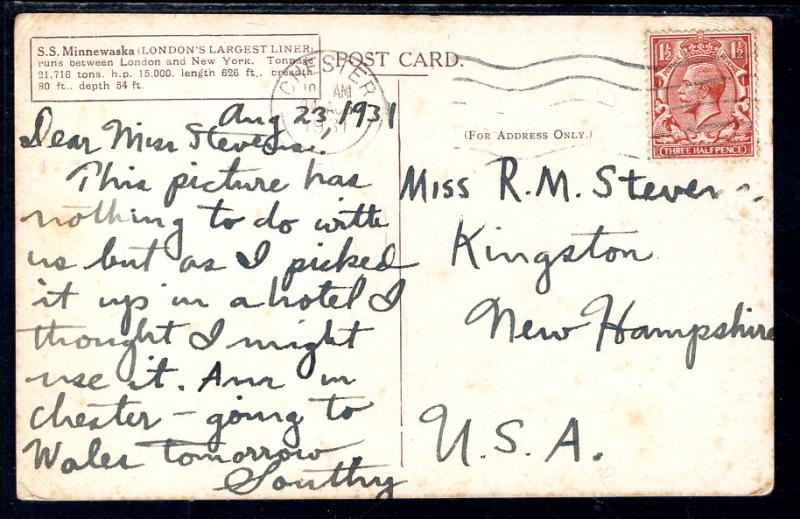 S.S. Minnewaska (LONDON'S LARGEST LINER)
runs between London and New York. Tonnage
21,716 tons. h.p. 15,000. length 626 ft., breadth
80 ft., depth 54 ft.
POST CARD.
(FOR ADDRESS ONLY.)
CHESTER
AM
1931
1½ 1½
THREE HALFPENCE
Aug 23, 1931
Dear Miss Stevens.
This picture has
nothing to do with
us but as I picked
it up in a hotel I
thought I might
use it. Am in
Chester – going to
Wales tomorrow.
Miss R. M. Stevens
Kingston
New Hampshire
U.S.A.